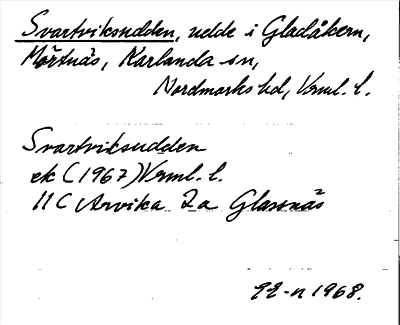 Svartviksudden, udde i Gladåkern,
Mörtnäs, Karlanda sn,
Nordmarks hd, Vrml. l.
Svartviksudden
ek (1967) Vrml. l.
11 C Arvika 2 a Glassnäs
1968.